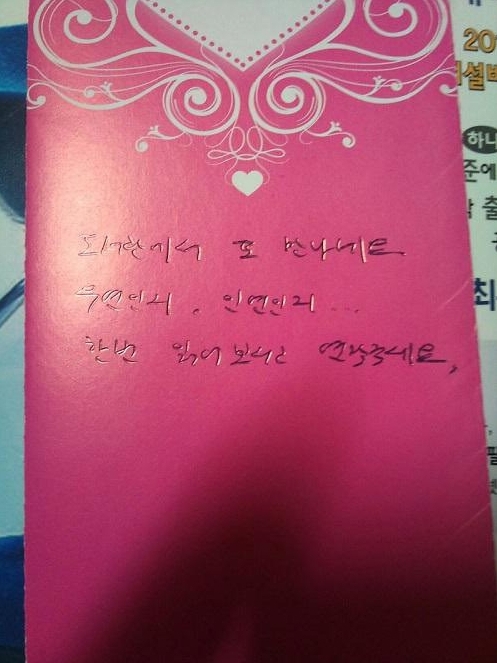 도서관에서 또 만나네요
우연인지, 인연인지...
한번 읽어보시고 연락주세요,
20
설
하나
준에
출
최
필